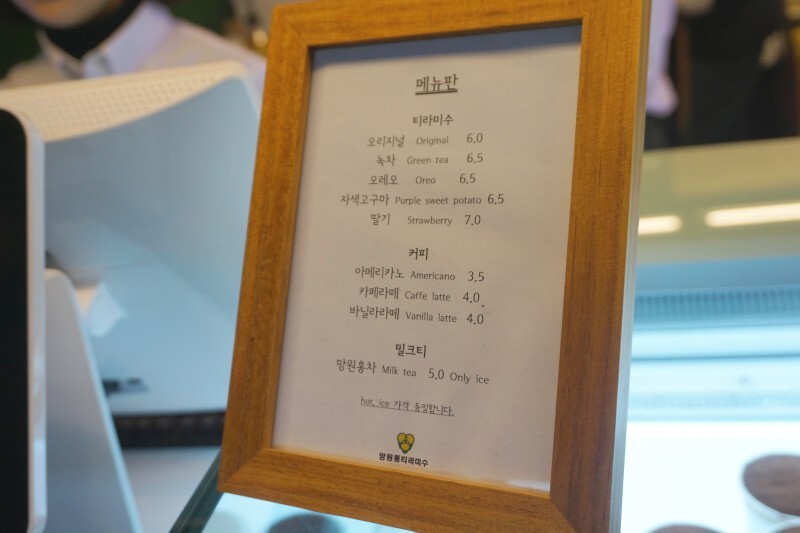 메뉴판
티라미수
오리지널 Original 6.0
녹차 Green tea 6.5
오레오 Oreo 6.5
자색고구마 Purple sweet potato 6.5
딸기 Strawberry 7.0
커피
아메리카노 Americano 3.5
카페라떼 Caffe latte 4.0
바닐라라떼 Vanilla latte 4.0
밀크티
망원홍차 Milk tea 5.0 Only ice
hot, ice 가격 동일합니다.
망원동티라미수